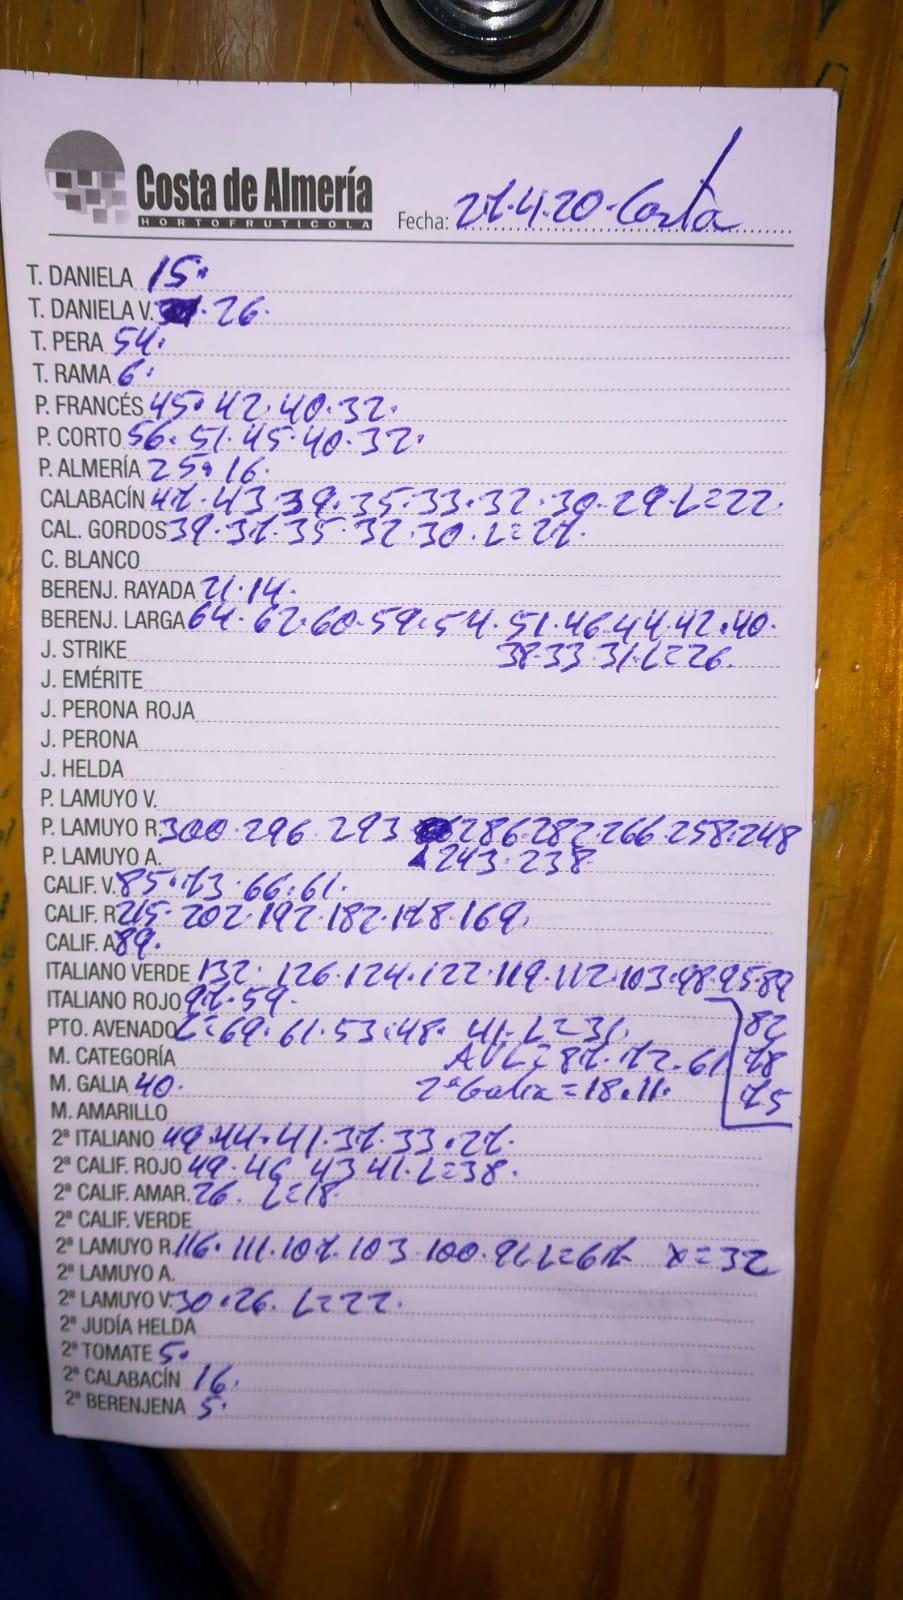 Costa de Almería
HORTOFRUTICOLA
Fecha: 27.4.20. Costa
T. DANIELA 15.
T. DANIELA V. 26.
T. PERA 54.
T. RAMA 6.
P. FRANCÉS 45. 42. 40. 32.
P. CORTO 56. 51. 45. 40. 32.
P. ALMERÍA 25. 16.
CALABACÍN 47. 43 39. 35. 33. 32. 30. 29. L=22.
CAL. GORDOS 39. 37. 35. 32. 30. L=27.
C. BLANCO
BERENJ. RAYADA 21. 14.
BERENJ. LARGA 64. 62. 60. 59. 54. 51. 46. 44. 42. 40.
J. STRIKE 38. 33. 31. L=26.
J. EMÉRITE
J. PERONA ROJA
J. PERONA
J. HELDA
P. LAMUYO V.
P. LAMUYO R. 300. 296. 293 286. 282. 266. 258. 248
P. LAMUYO A. 243. 238.
CALIF. V. 85. 73. 66. 61.
CALIF. R 215. 202. 192. 182. 178. 169.
CALIF. A 89.
ITALIANO VERDE 132. 126. 124. 122. 119. 112. 103. 98. 95. 89
ITALIANO ROJO 97. 59. 82
PTO. AVENADO L=69. 61. 53. 48. 41. L=31.
M. CATEGORÍA AVL=87. 72. 61 78
M. GALIA 40. 2ª Galia=18. 11. 75
M. AMARILLO
2ª ITALIANO 49. 44. 41. 37. 33. 27.
2ª CALIF. ROJO 49. 46. 43 41. L=38.
2ª CALIF. AMAR. 26. L=18.
2ª CALIF. VERDE
2ª LAMUYO R. 116. 111. 107. 103. 100. 91 L=67 X=32
2ª LAMUYO A.
2ª LAMUYO V. 30. 26. L=22.
2ª JUDÍA HELDA
2ª TOMATE 5.
2ª CALABACÍN 16.
2ª BERENJENA 5.